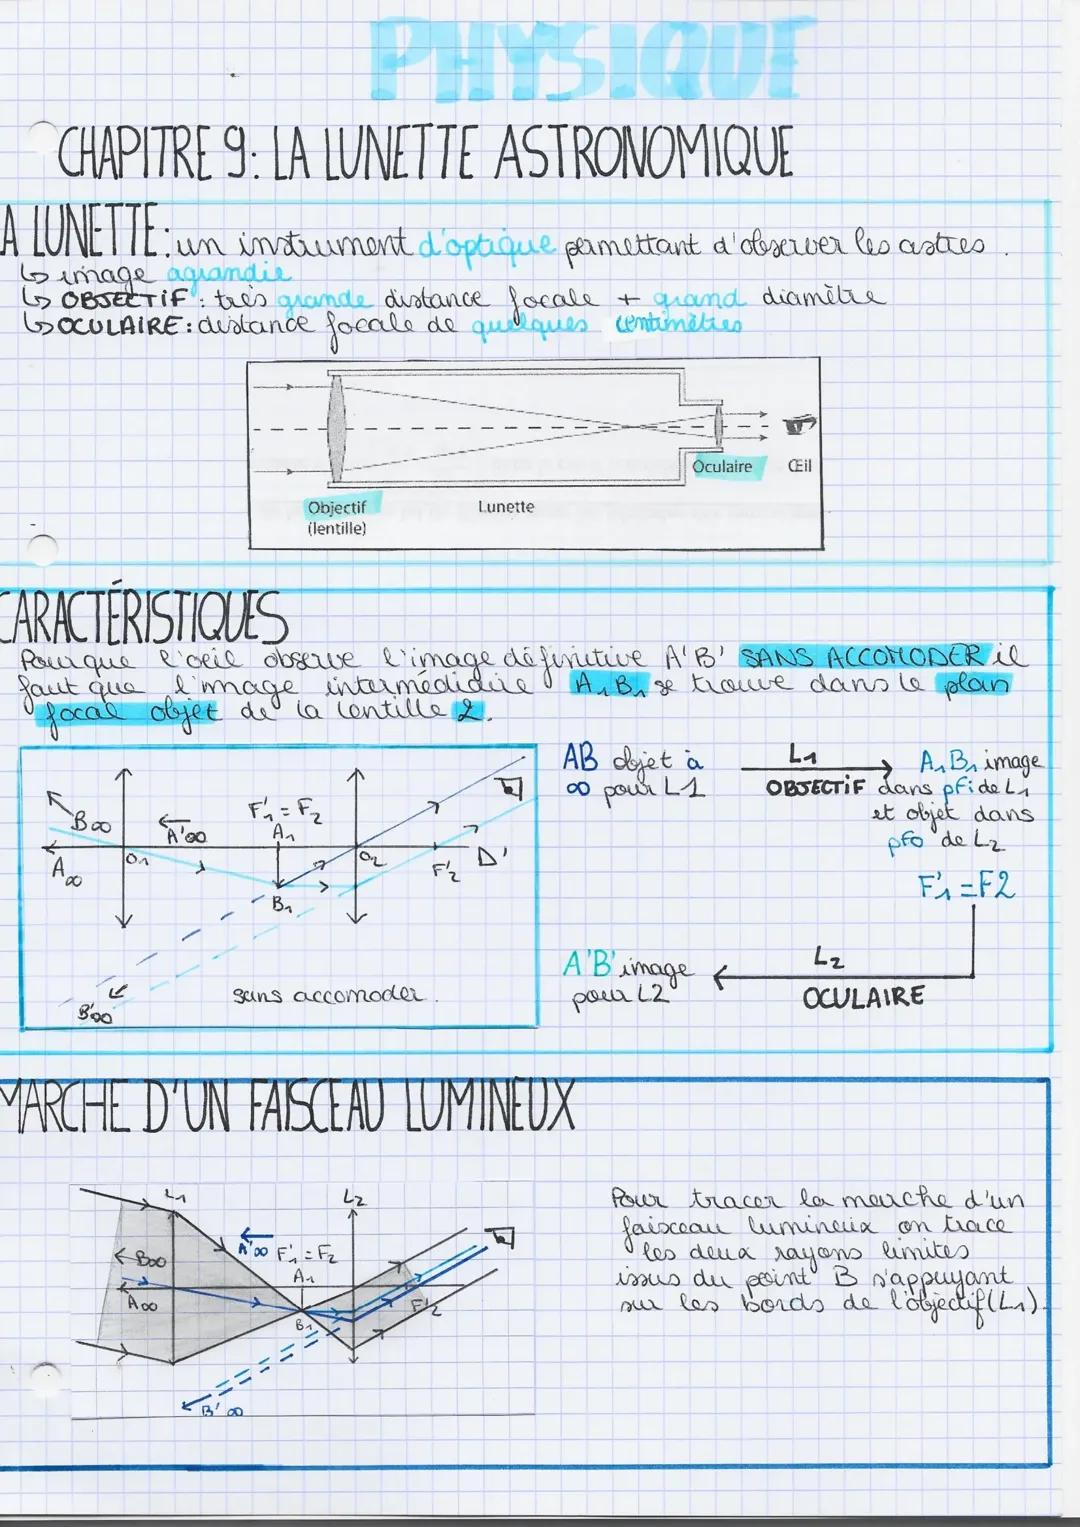 PHYSIQUE
CHAPITRE 9: LA LUNETTE ASTRONOMIQUE
A LUNETTE: un instrument d'optique permettant d'observer les astres.
↳ image agrandie
↳ OBJECTIF: très grande distance focale + grand diamètre
↳ OCULAIRE: distance focale de quelques centimètres
Oculaire
Œil
Objectif
(lentille)
Lunette
CARACTÉRISTIQUES
Pour que l'oeil observe l'image définitive A'B' SANS ACCOMODER il
faut que l'image intermédiaire A₁B₁ se trouve dans le plan
focal objet de la lentille 2.
B∞
A'∞
F'₁ = F₂
A₁
A∞
O₁
O₂
F'₂
Δ'
B₁
B'∞
sans accomoder.
AB objet à
∞ pour L1
L₁
OBJECTIF
A₁B₁ image
dans pfi de L₁
et objet dans
pfo de L₂
F'₁ = F2
L₂
OCULAIRE
A'B' image
pour L2
MARCHE D'UN FAISCEAU LUMINEUX
L₁
L₂
B∞
A'∞
F'₁ = F₂
A₁
A∞
B₁
F'₂
B'∞
Pour tracer la marche d'un
faisceau lumineux on trace
les deux rayons limites
issus du point B s'appuyant
sur les bords de l'objectif (L₁).